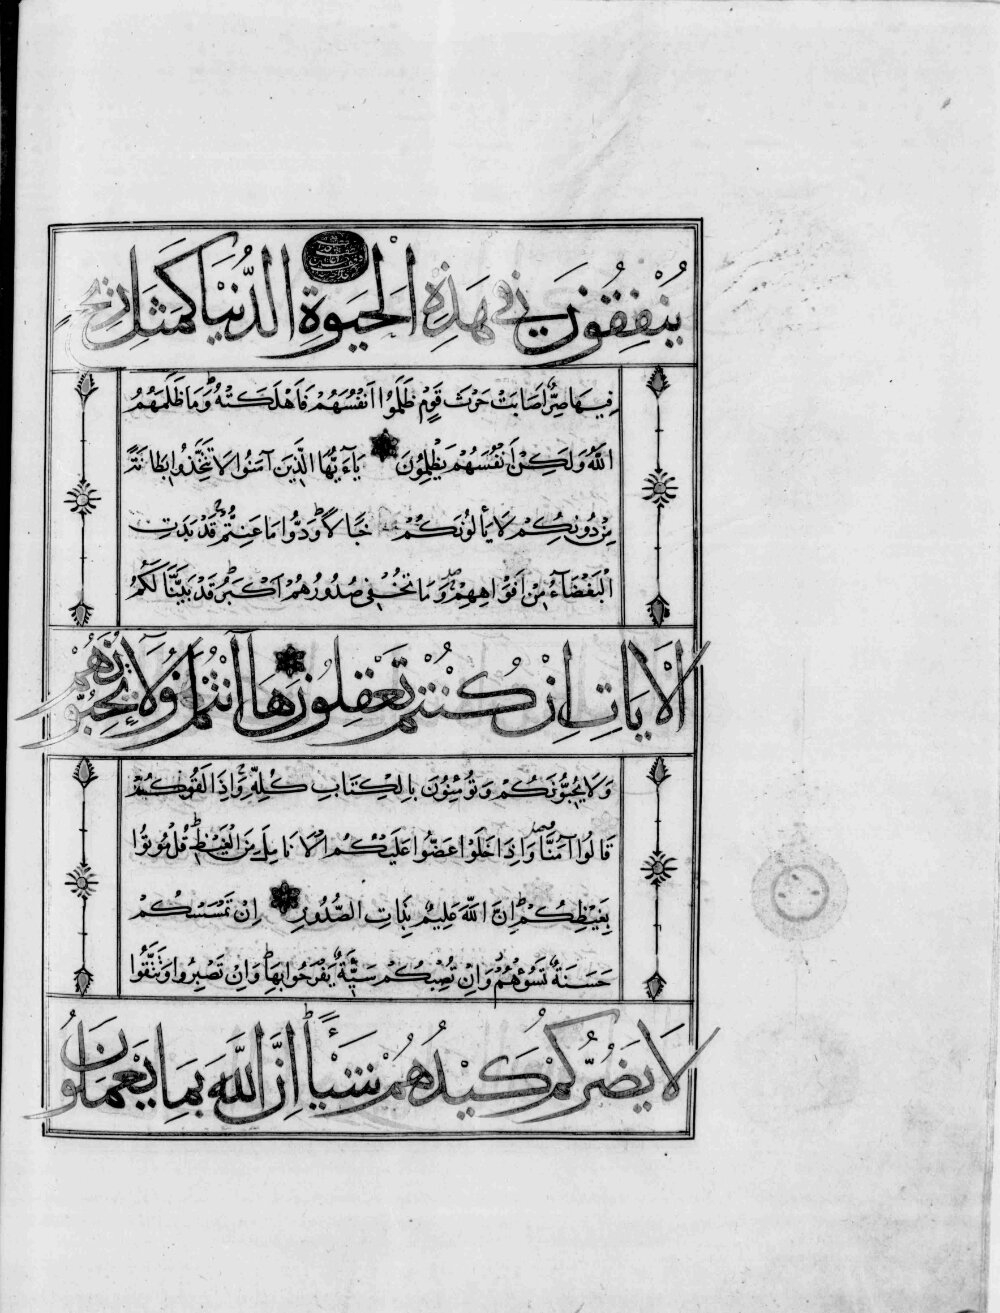 يُنْفِقُونَ فِي هَذِهِ الْحَيَوةِ الدُّنْيَا كَمَثَلِ رِيحٍ
فِيهَا صِرٌّ أَصَابَتْ حَرْثَ قَوْمٍ ظَلَمُوا أَنْفُسَهُمْ فَأَهْلَكَتْهُ وَمَا ظَلَمَهُمُ
اللَّهُ وَلَكِنْ أَنْفُسَهُمْ يَظْلِمُونَ يَاءَيُّهَا الَّذِينَ آمَنُوا لَا تَتَّخِذُوا بِطَانَةً
مِنْ دُونِكُمْ لَا يَأْلُونَكُمْ خَبَالًا وَدُّوا مَا عَنِتُّمْ قَدْ بَدَتِ
الْبَغْضَاءُ مِنْ أَفْوَاهِهِمْ وَمَا تُخْفِي صُدُورُهُمْ أَكْبَرُ قَدْ بَيَّنَّا لَكُمُ
الْآيَاتِ إِنْ كُنْتُمْ تَعْقِلُونَ هَا أَنْتُمْ أُولَاءِ تُحِبُّونَهُمْ
وَلَا يُحِبُّونَكُمْ وَتُؤْمِنُونَ بِالْكِتَابِ كُلِّهِ وَإِذَا لَقُوكُمْ
قَالُوا آمَنَّا وَإِذَا خَلَوْا عَضُّوا عَلَيْكُمُ الْأَنَامِلَ مِنَ الْغَيْظِ قُلْ مُوتُوا
بِغَيْظِكُمْ إِنَّ اللَّهَ عَلِيمٌ بِذَاتِ الصُّدُورِ إِنْ تَمْسَسْكُمْ
حَسَنَةٌ تَسُؤْهُمْ وَإِنْ تُصِبْكُمْ سَيِّئَةٌ يَفْرَحُوا بِهَا وَإِنْ تَصْبِرُوا وَتَتَّقُوا
لَا يَضُرُّكُمْ كَيْدُهُمْ شَيْئًا إِنَّ اللَّهَ بِمَا يَعْمَلُونَ